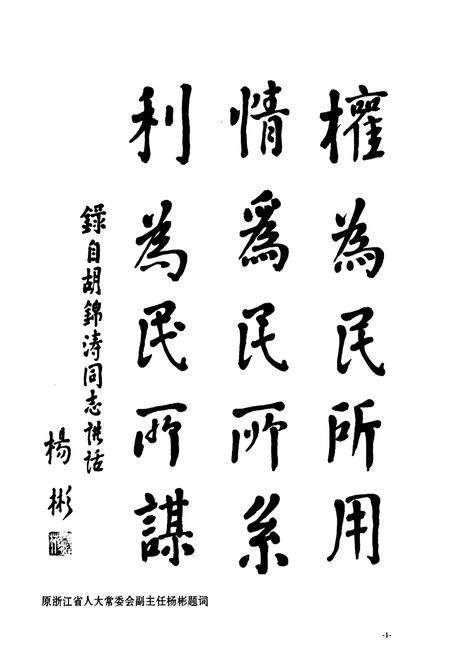 權為民所用
情爲民所系
利為民所謀
錄自胡錦涛同志讲话
楊彬
原浙江省人大常委会副主任杨彬题词
-1-